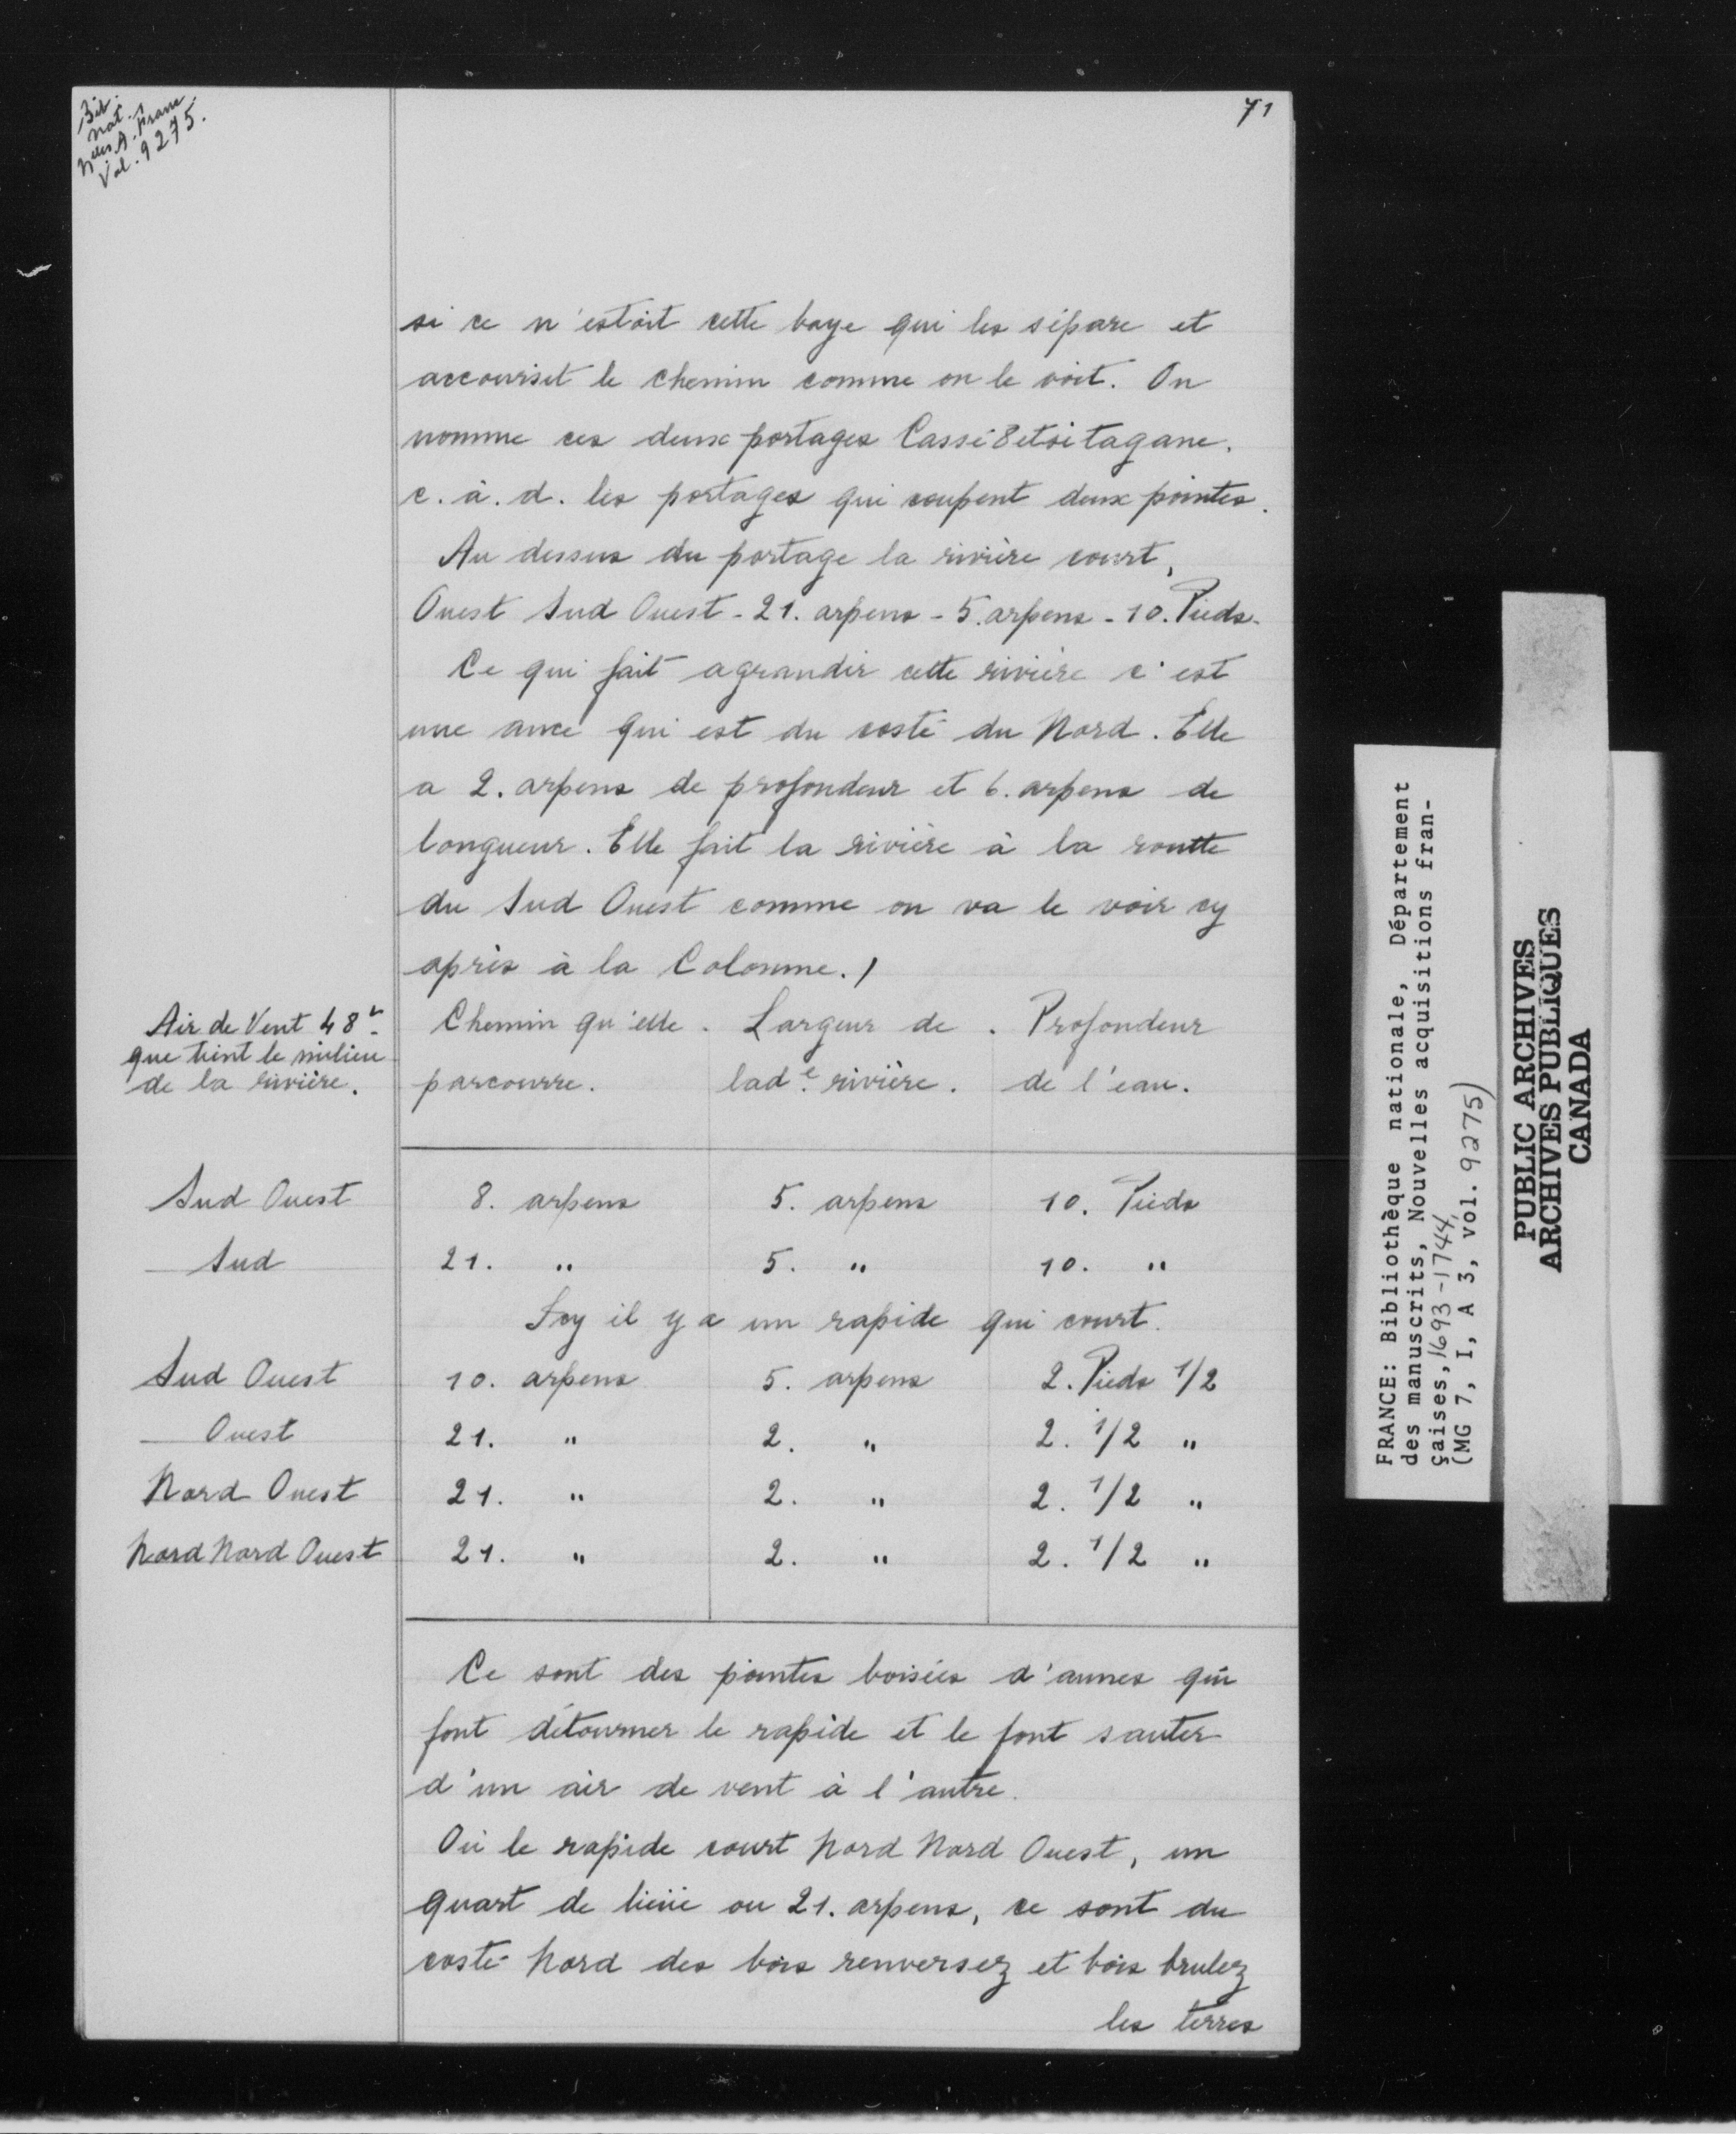 Bib.
Nat.
Nelles A. Franc.
Vol. 9275.
71
si ce n'estoit cette baye qui les sépare et
accourisit le chemin comme on le voit. On
nomme ces deux portages Cassé8etsitagane.
c. à. d. les portages qui coupent deux pointes.
Au dessus du portage la rivière court,
Ouest Sud Ouest - 21. arpens - 5. arpens - 10. Pieds.
Ce qui fait agrandir cette rivière c'est
une ance qui est du costé du Nord. Elle
a 2. arpens de profondeur et 6. arpens de
longueur. Elle fait la rivière à la routte
du Sud Ouest comme on va le voir cy
après à la Colonne. /
Air de Vent 48r.
que tient le milieu
de la rivière.
Chemin qu'elle . Largeur de . Profondeur
parcourre. lade. rivière. de l'eau.
Sud Ouest 8. arpens 5. arpens 10. Pieds
Sud 21. " 5. " 10. "
Icy il y a un rapide qui court.
Sud Ouest 10. arpens 5. arpens 2. Pieds 1/2
Ouest 21. " 2. " 2. 1/2 "
Nord Ouest 21. " 2. " 2. 1/2 "
Nord Nord Ouest 21. " 2. " 2. 1/2 "
Ce sont des pointes boisées d'aunes qui
font détourner le rapide et le font sauter
d'un air de vent à l'autre.
Où le rapide court Nord Nord Ouest, un
quart de lieüe ou 21. arpens, ce sont du
costé Nord des bois renversez et bois brulez
les terres
FRANCE: Bibliothèque nationale, Département
des manuscrits, Nouvelles acquisitions fran-
çaises, 1693-1744
(MG 7, I, A 3, vol. 9275)
PUBLIC ARCHIVES
ARCHIVES PUBLIQUES
CANADA